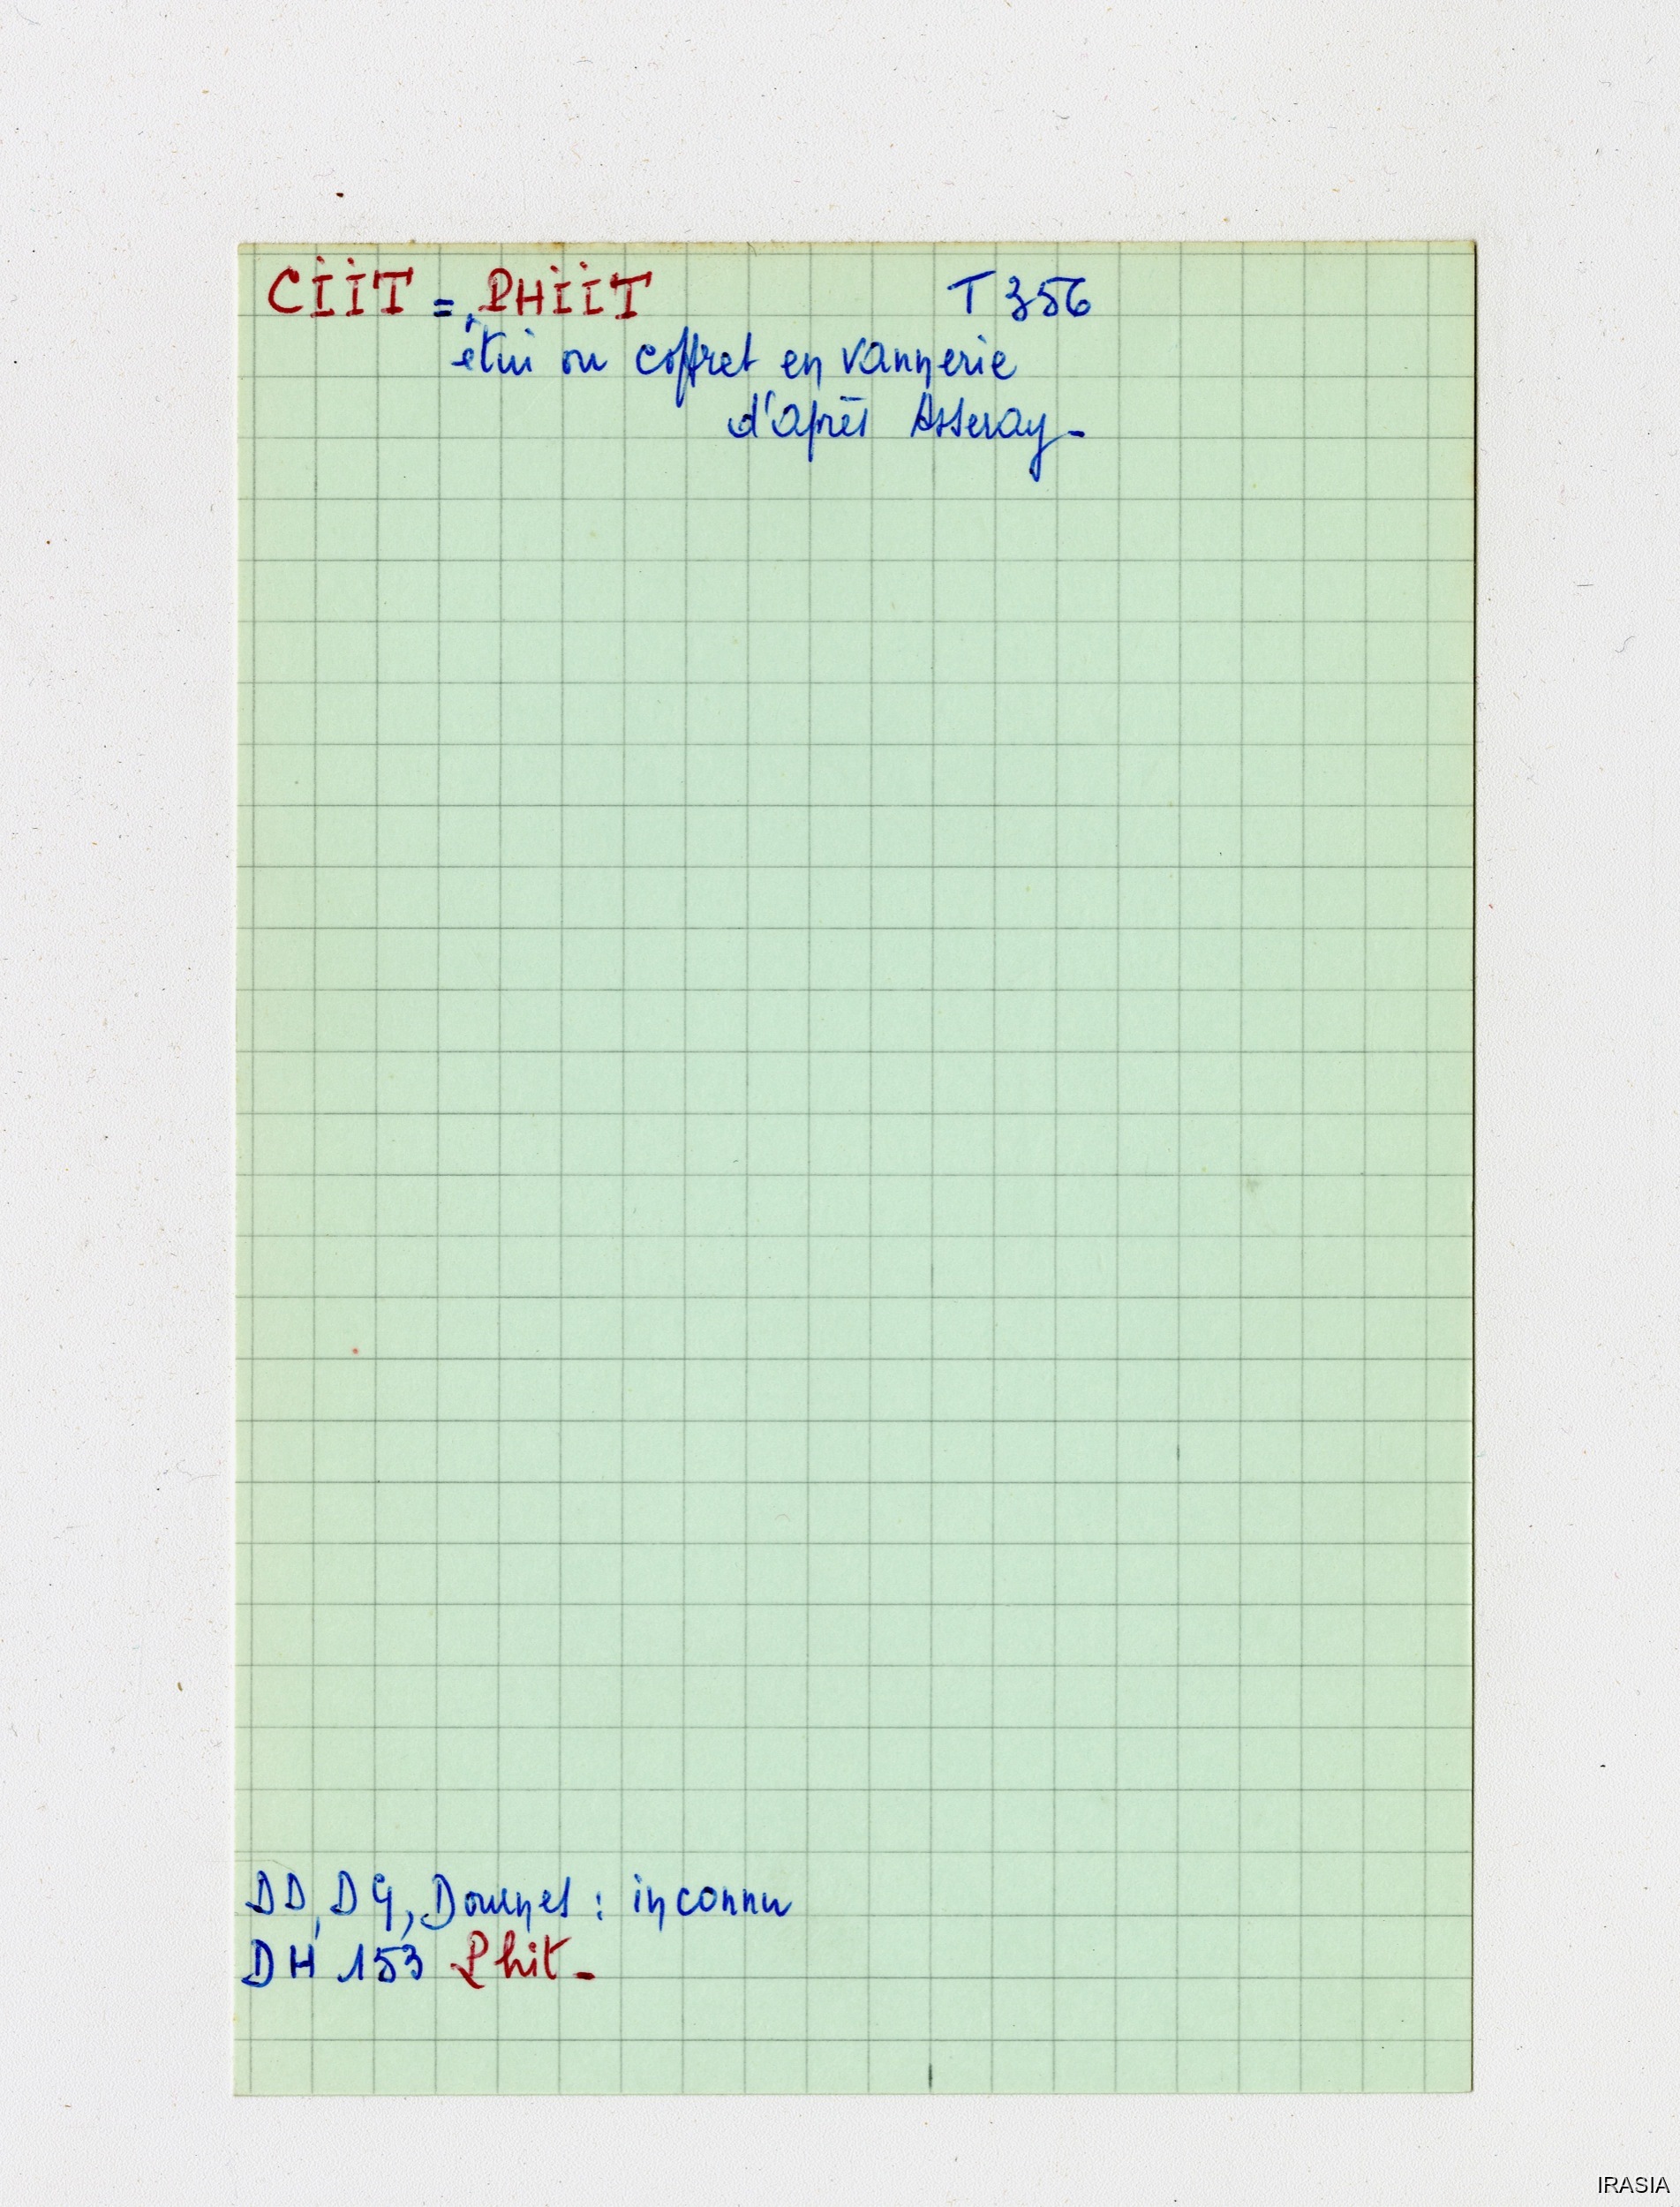 CİİT = PHİİT T 356
étui ou coffret en vannerie
d'après Asseray -
DD, DG, Dournes : inconnu
DH 153 Phit -
IRASIA